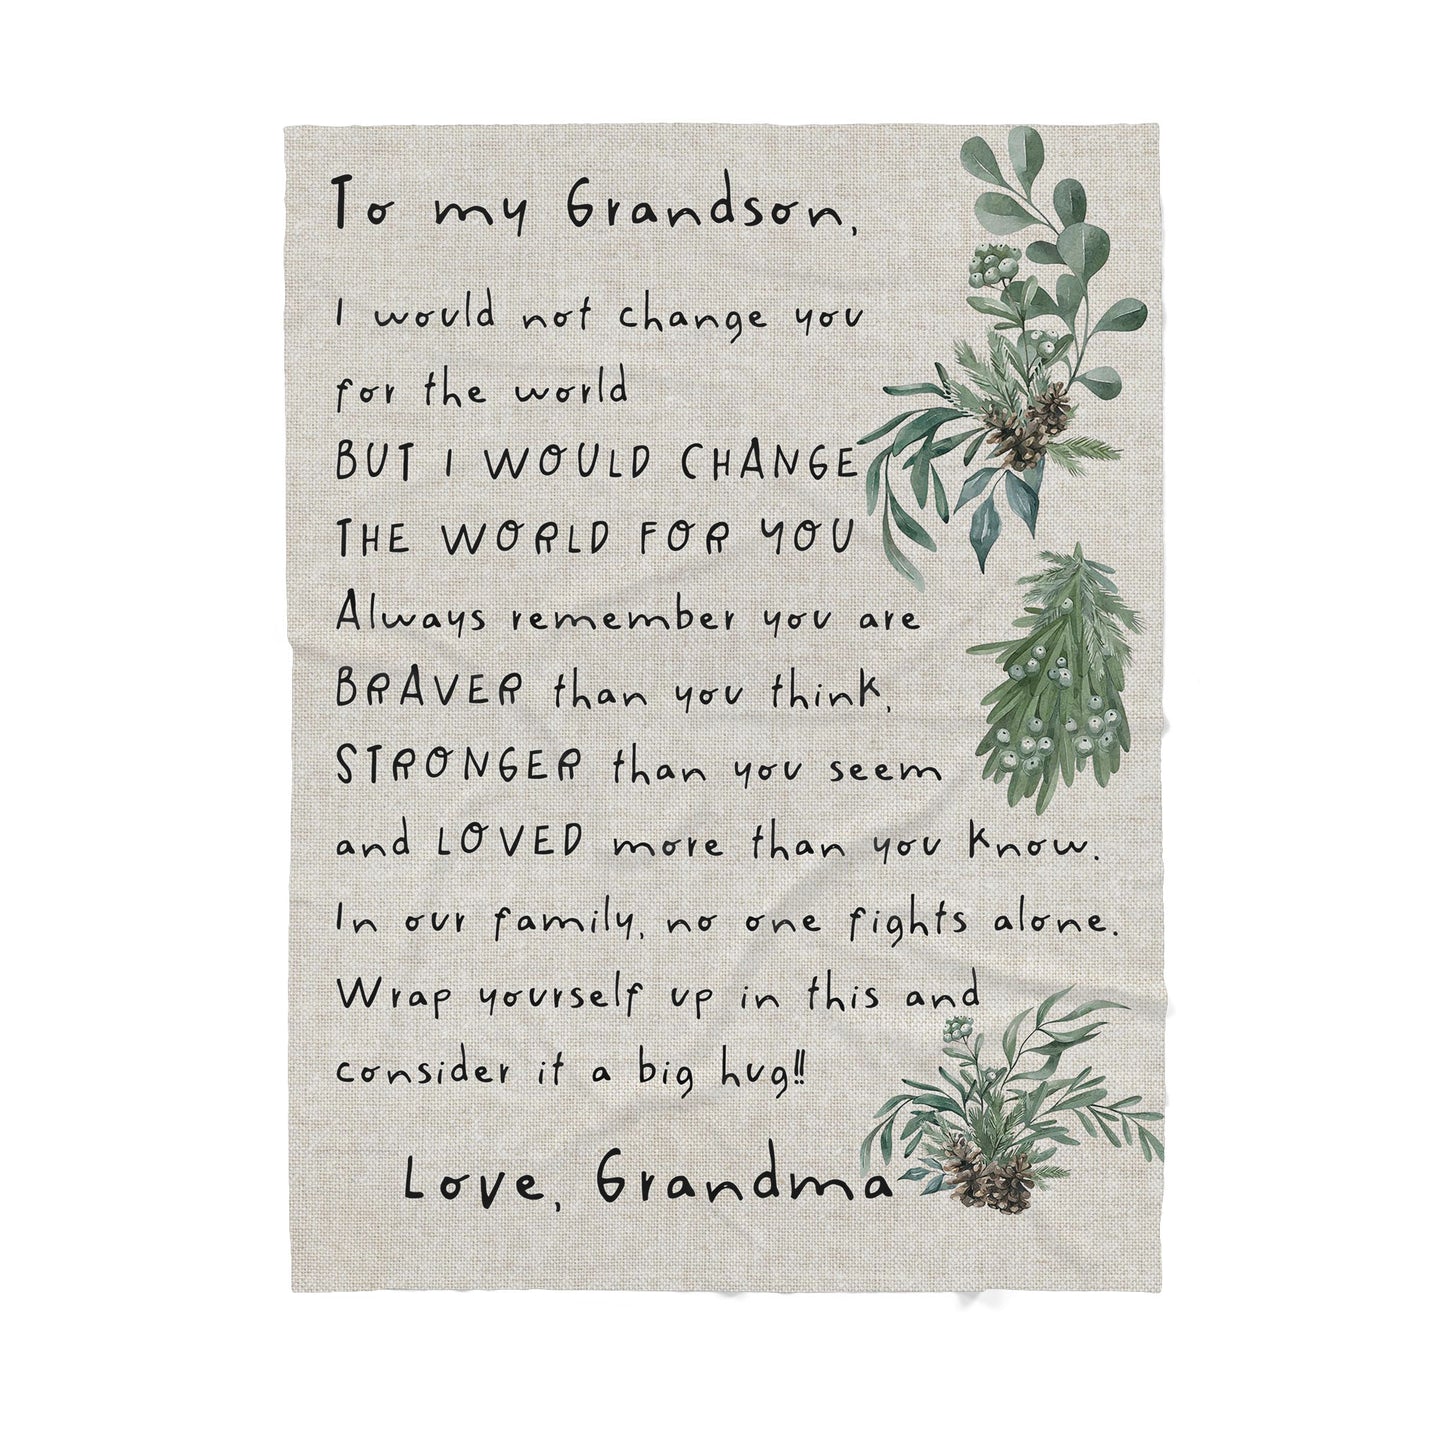 To my Grandson,
I would not change you
for the world
BUT I WOULD CHANGE
THE WORLD FOR YOU
Always remember you are
BRAVER than you think,
STRONGER than you seem
and LOVED more than you know.
In our family, no one fights alone.
Wrap yourself up in this and
consider it a big hug!!
Love, Grandma